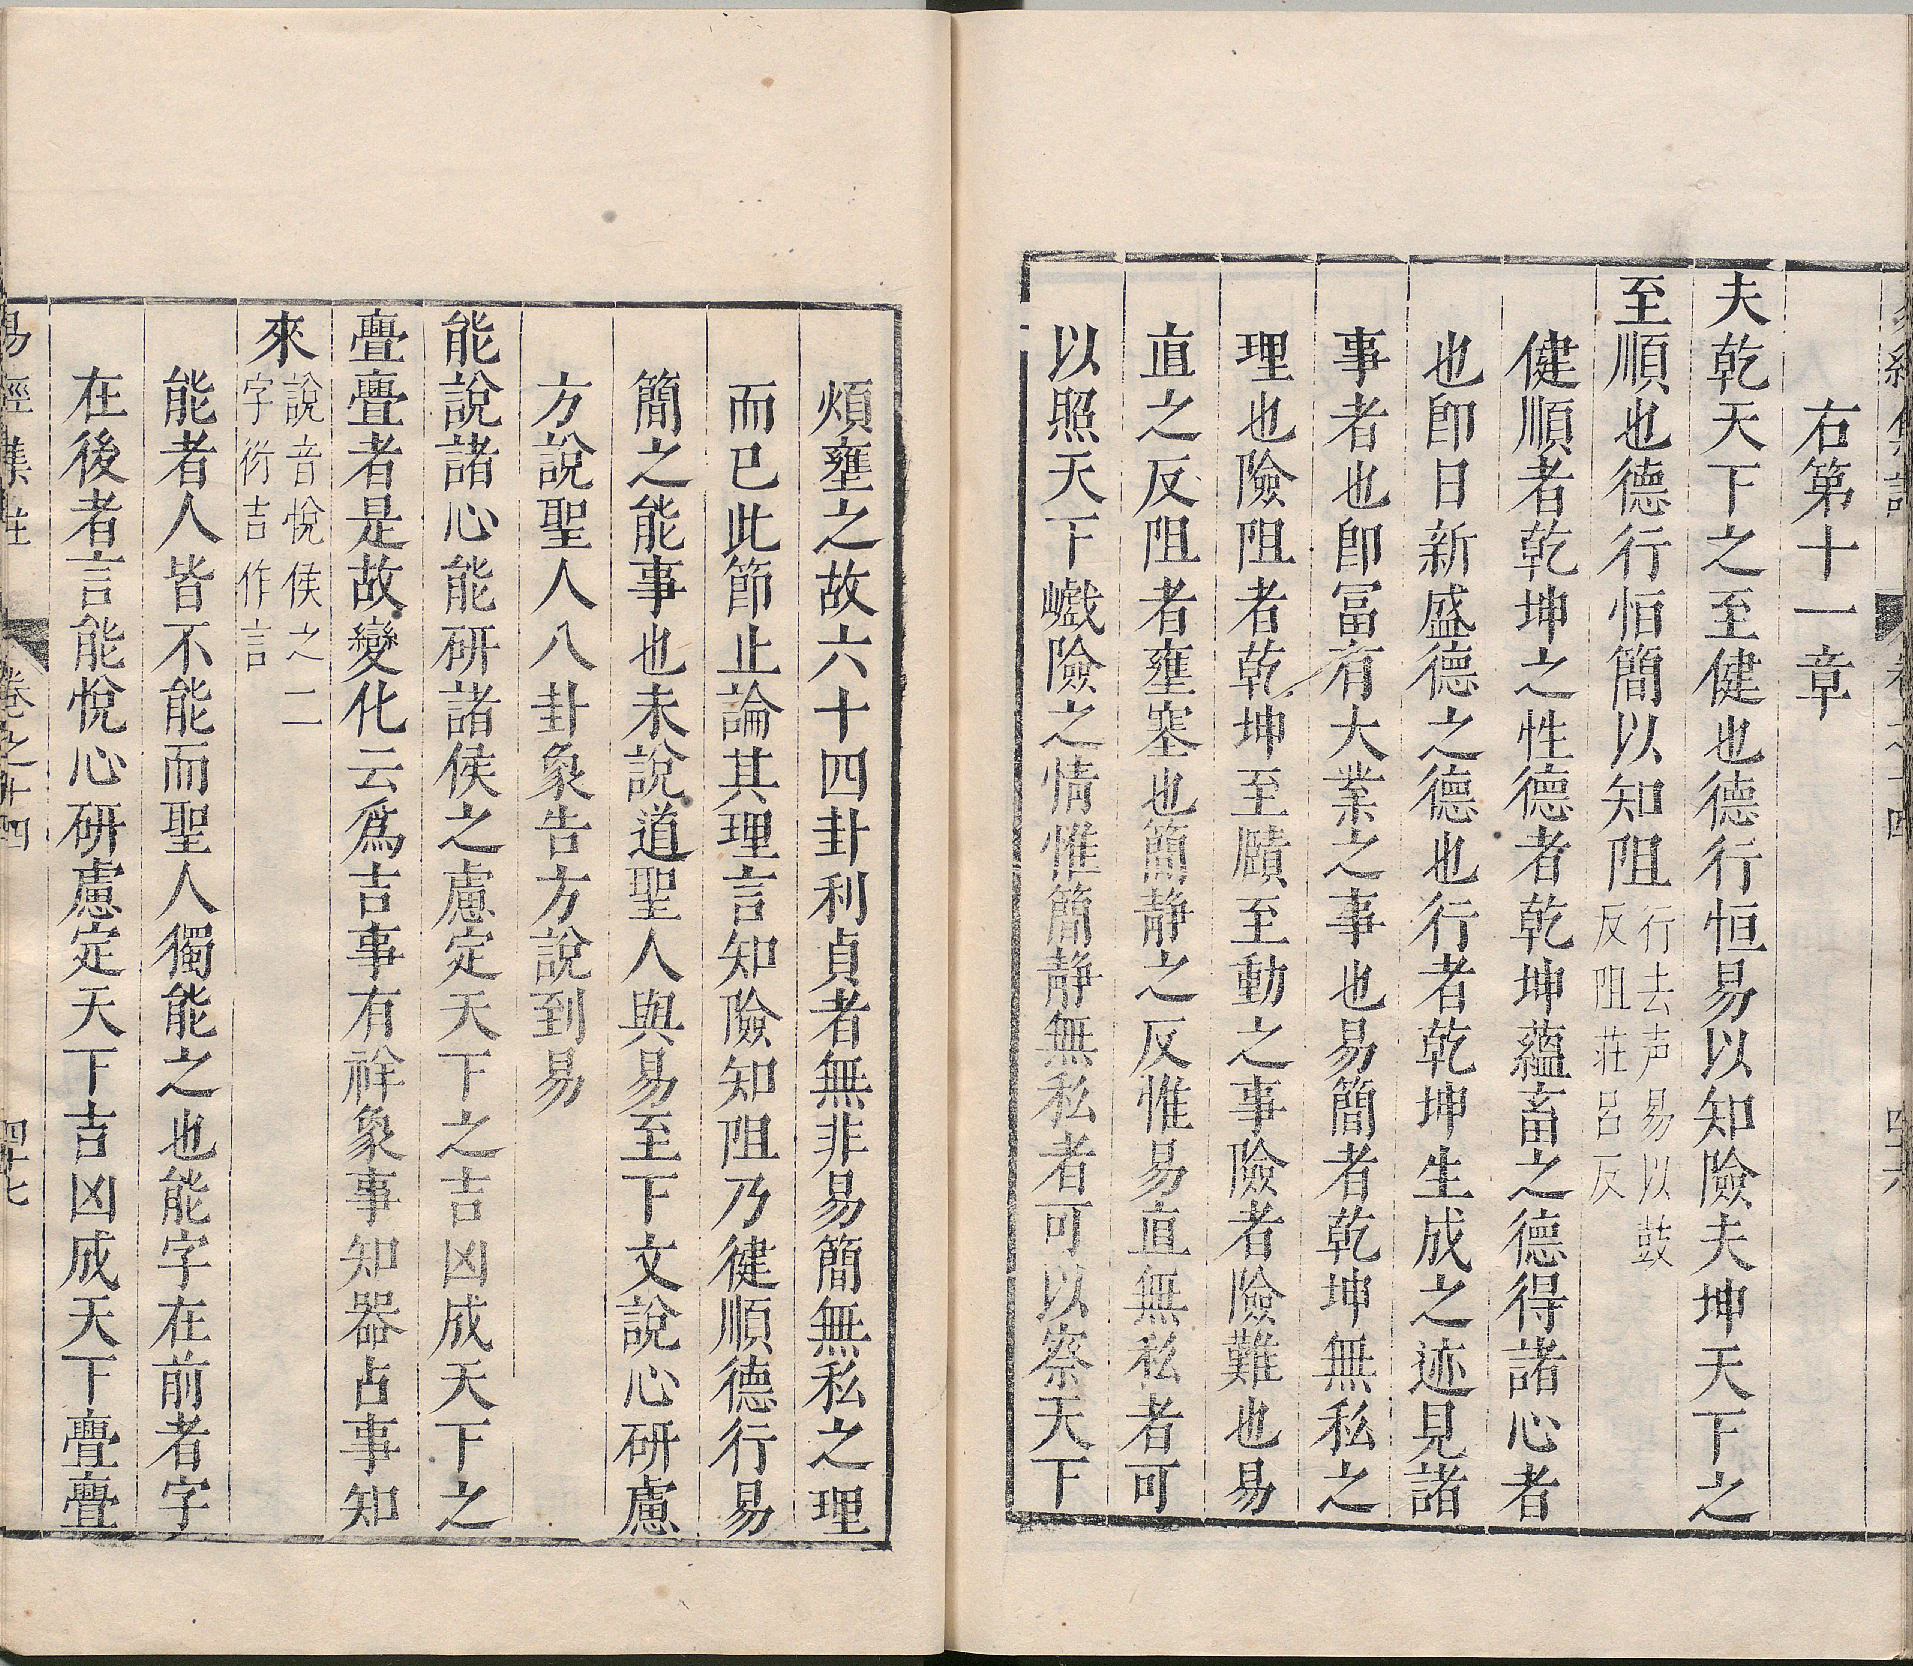 右第十一章
夫乾天下之至健也德行恒易以知險夫坤天下之
至順也德行恒簡以知阻行去声易以豉反阻莊呂反
健順者乾坤之性德者乾坤蘊畜之德得諸心者
也卽日新盛德之德也行者乾坤生成之迹見諸
事者也卽冨有大業之事也易簡者乾坤無私之
理也險阻者乾坤至賾至動之事險者險難也易
直之反阻者壅塞也簡靜之反惟易直無私者可
以照天下巇險之情惟簡靜無私者可以察天下
煩壅之故六十四卦利貞者無非易簡無私之理
而已此節止論其理言知險知阻乃健順德行易
簡之能事也未說道聖人與易至下文說心研慮
方說聖人八卦象告方說到易
能說諸心能研諸侯之慮定天下之吉凶成天下之
亹亹者是故變化云爲吉事有祥象事知器占事知
來說音悅侯之二字衍吉作言
能者人皆不能而聖人獨能之也能字在前者字
在後者言能悅心研慮定天下吉凶成天下亹亹
易經集註 卷之十四 四十七